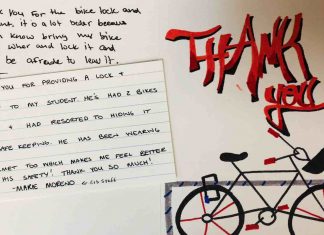 you for the bike lock and
it's a lot beder becaus
know bring my bike
wher and lock it and
be afraide to leav it.
YOU FOR PROVIDING A LOCK &
TO MY STUDENT. HE'S HAD 2 BIKES
& HAD RESORTED TO HIDING IT
SAFE KEEPING. HE HAS BEEN WEARING
MET TOO WHICH MAKES ME FEEL BETTER
HIS SAFETY! THANK YOU SO MUCH!
-MARIE MORENO
THANK
you